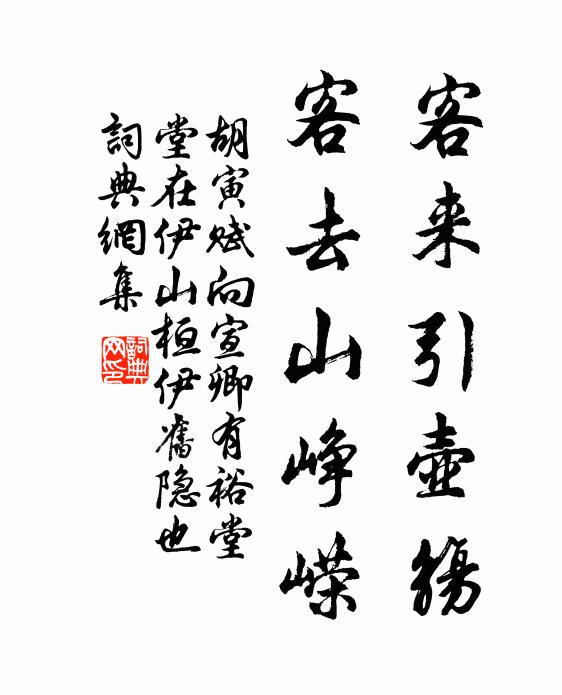 客来引壺觴
客去山崢嶸
胡寅赋向宣卿有裕堂
堂在伊山桓伊舊隐也
詞典網集
詞典网印